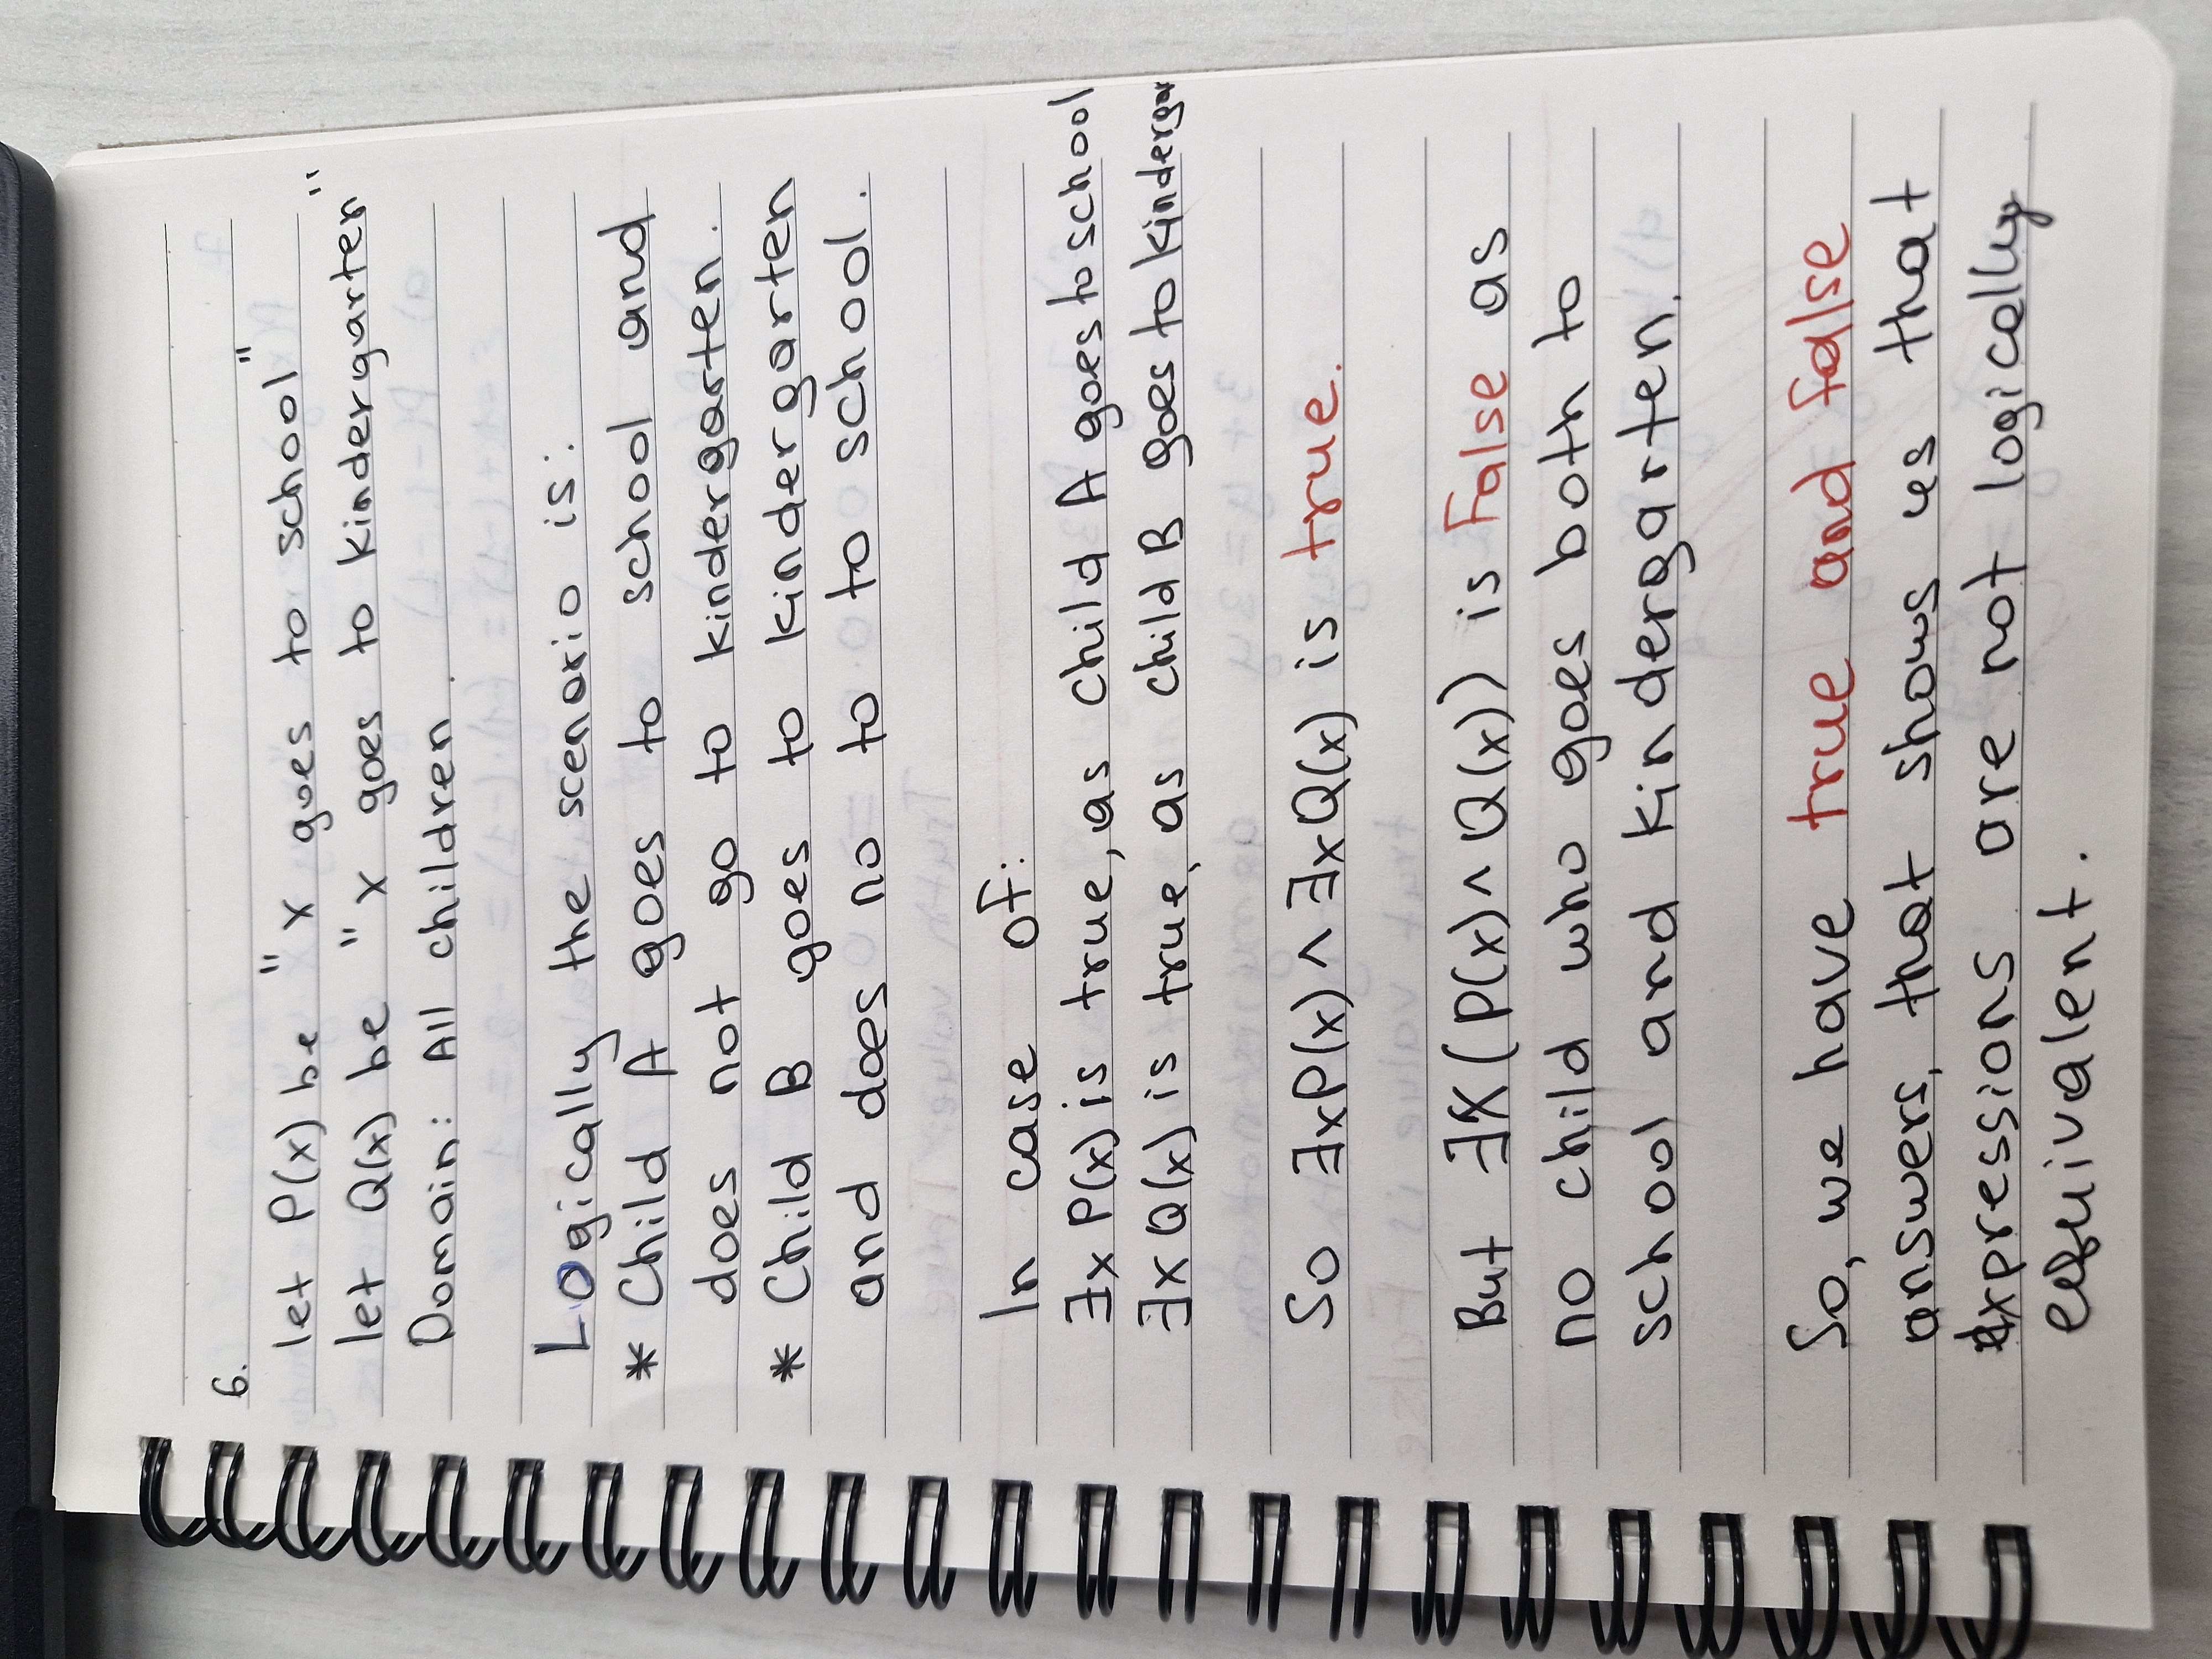 6.
let P(x) be "x goes to school"
let Q(x) be "x goes to kindergarten"
Domain: All children.
Logically the scenario is:
* Child A goes to school and
does not go to kindergarten.
* Child B goes to kindergarten
and does no to to school.
In case of:
∃x P(x) is true, as Child A goes to school
∃x Q(x) is true, as child B goes to kindergar
So ∃xP(x) ∧ ∃xQ(x) is true.
But ∃x(P(x) ∧ Q(x)) is False as
no child who goes both to
school and kindergarten.
So, we have true and false
answers, that shows us that
expressions are not logically
equivalent.